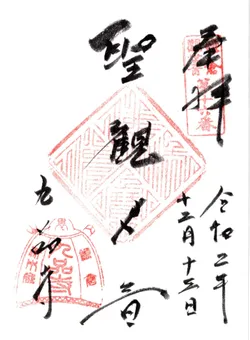 奉拝
令和二年
十二月十三日
聖観世音
九品寺